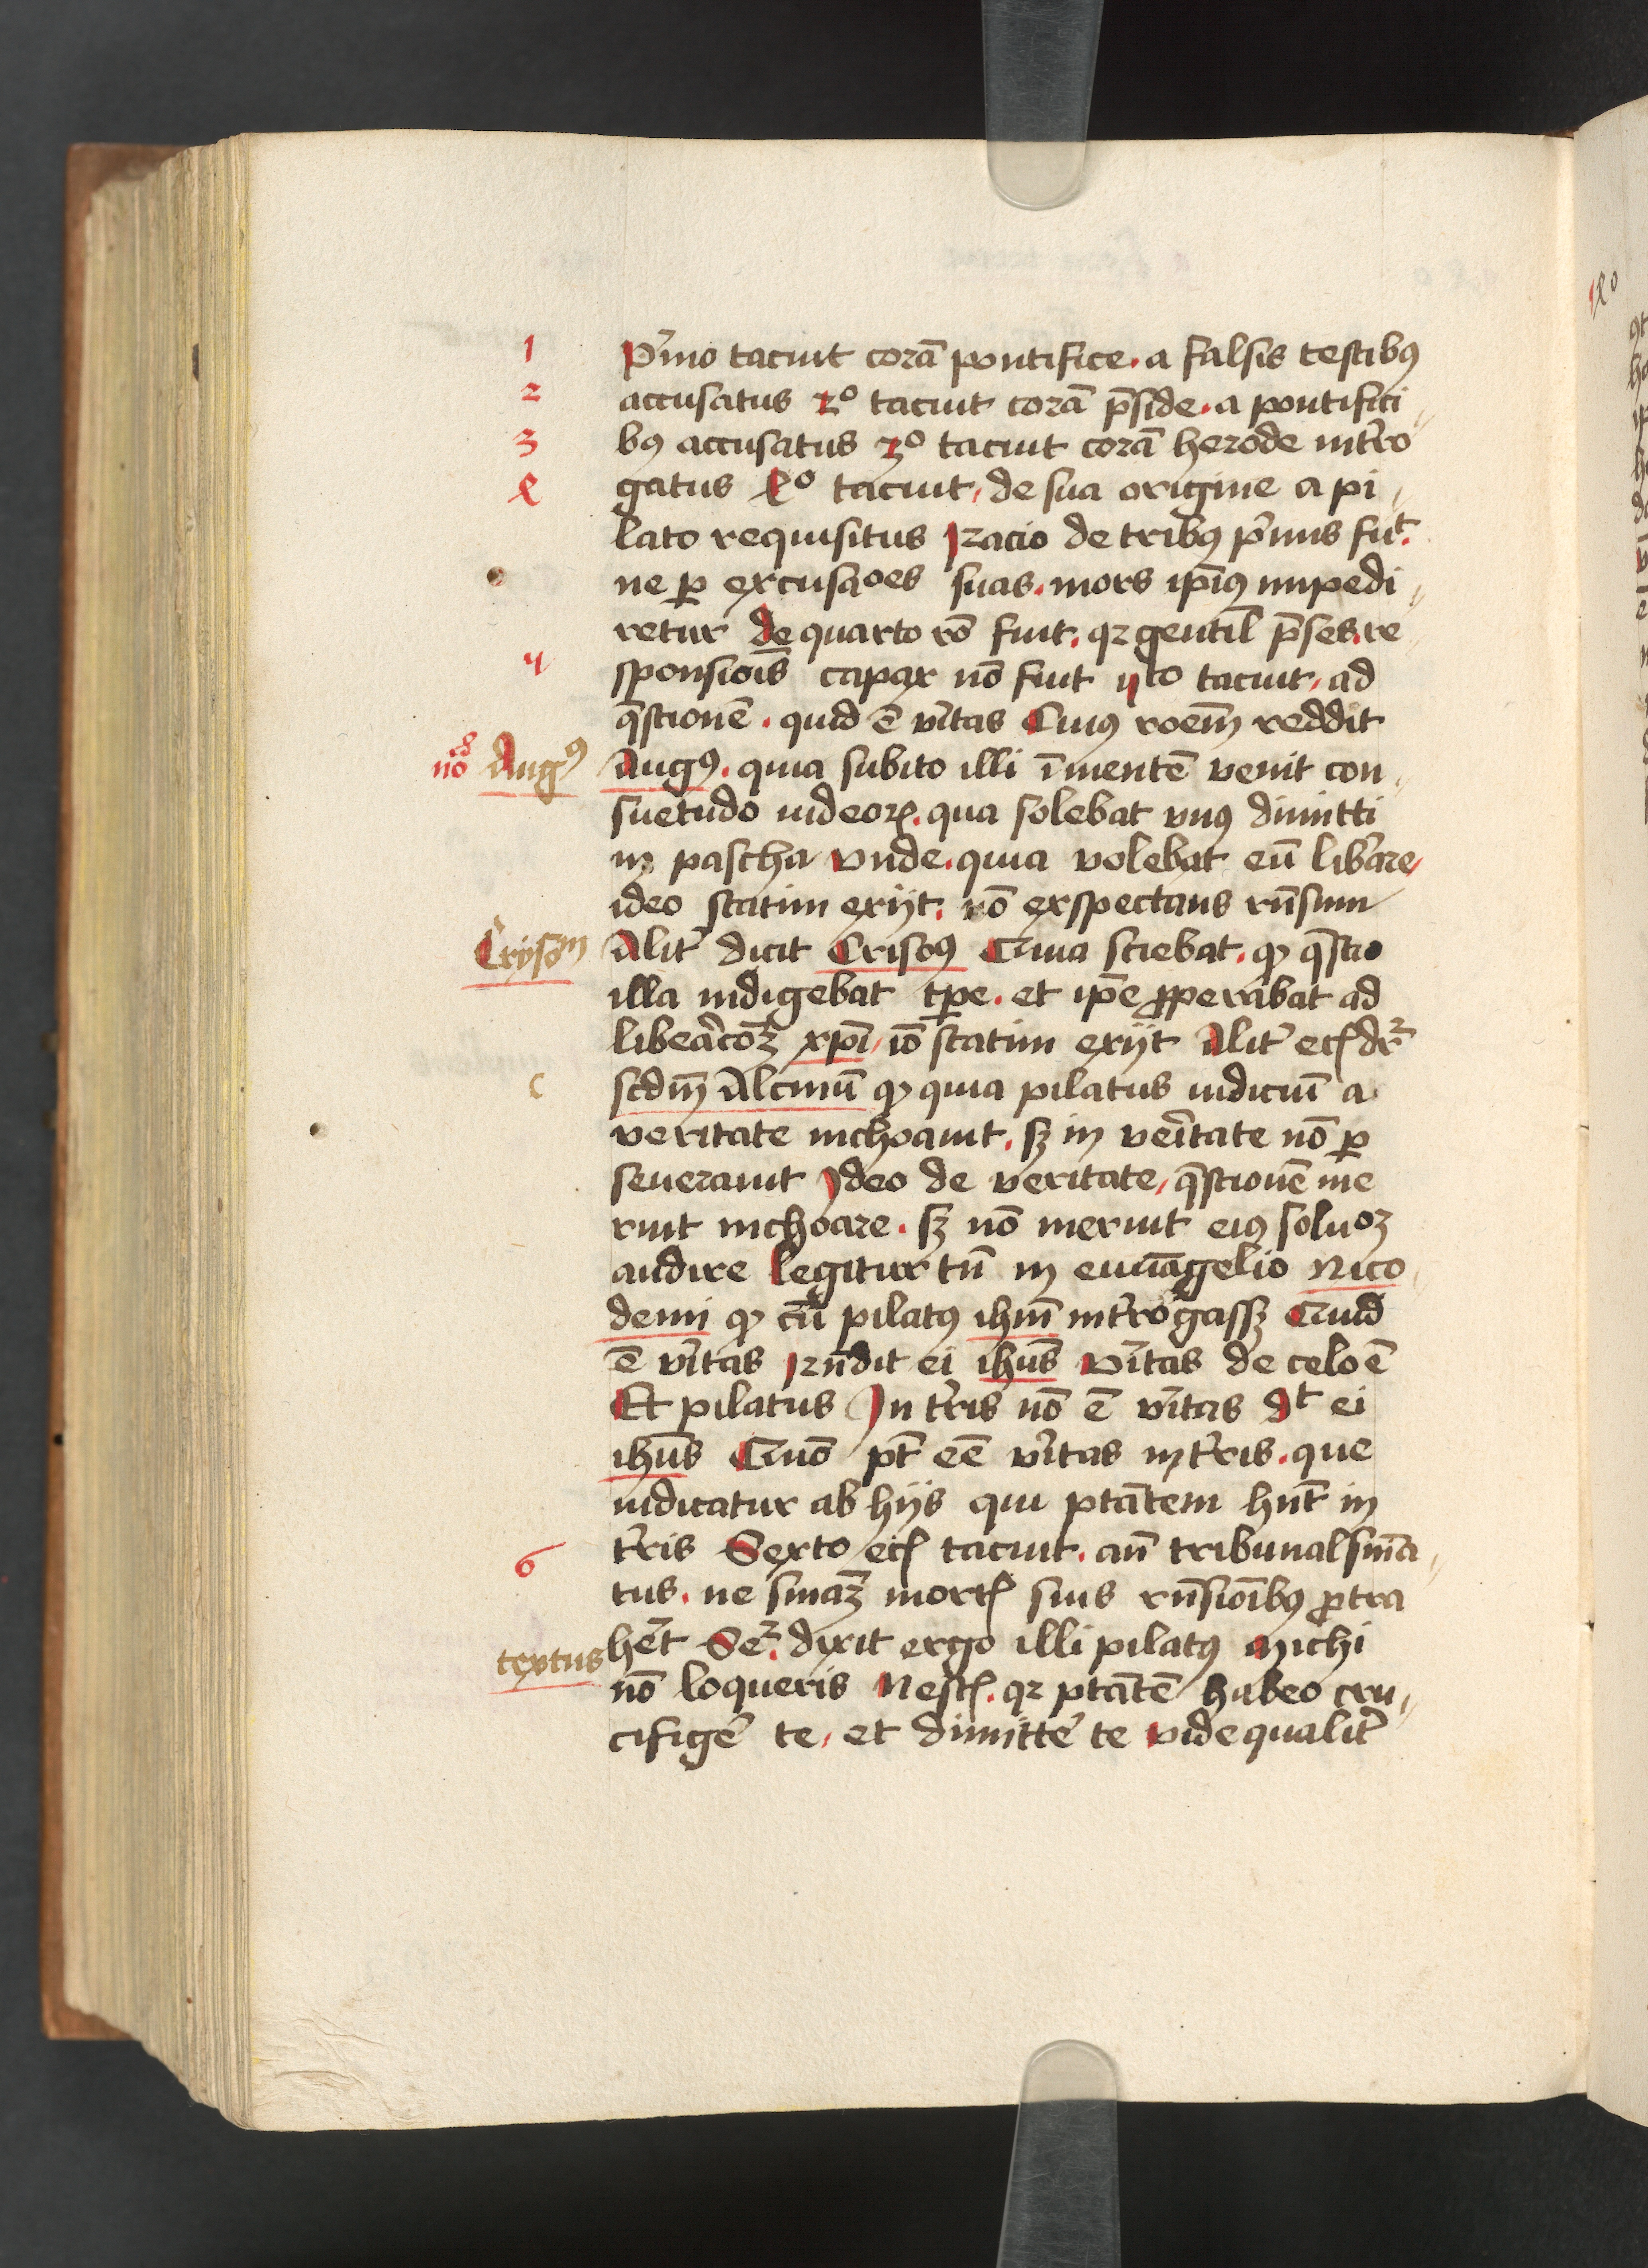 1 P͛mo tacuit corā pontifice · a falsis testibꝰ
2 accusatus 2º tacuit corā p̄side · a pontifici
3 bꝰ accusatus 3º tacuit corā herode int͛ro
ꝝ gatus 4º tacuit, de sua origine a pi
lato requisitus Racio de tribꝰ p͛mis fuᵗ.
ne ꝑ excusac̄oes suas · mors ip̄iꝰ impedi
retur de quarto rō fuit · qꝛ gentil̄ p̄ses · re
4 sponsiōis capax nō fuit vto tacuit, ad
q̄stionē · quid ē v͛itas Cuiꝰ roēm reddit
no Augꝰ Augꝰ · quia subito illi ī mentē venit con
suetudo iudeoꝝ · qua solebat vnꝰ dimitti
in pascha vnde · quia volebat eū lib͛are
ideo statim exijt · nō exspectans rn̄sum
Crijsoᵐ Alit͛ dicit Crisoꝰ Quia sciebat · ꝙ q̄stio
illa indigebat tp̄e · et ip̄e ꝓperabat ad
libeac͛oꝫ xp̄i, iō statim exijt Alit͛ ecꝭ dr̄
c scdm̄ Alcuinū ꝙ quia pilatus iudiciū a
veritate inchoauit · sꝫ in ve͛itate nō ꝑ
seuerauit Ideo de veritate, q̄stionē me
ruit inchoare · sꝫ nō meruit eiꝰ soluoꝫ
audire Legitur tn̄ in euuāgelio Nico
demi ꝙ cū pilatꝰ ihm̄ int͛rogassꝫ Quid
ē v͛itas Rn̄dit ei ihūs v͛itas de celo ē
Et pilatus In t͛ris nō ē v͛itas dᵗ ei
ihūs Quō pt̄ eē v͛itas in t͛ris · que
iudicatur ab hijs qui ptātem hn̄t in
6 t͛ris Sexto ecꝭ tacuit · an̄ tribunal sn̄ia
tus · ne sn̄iaꝫ mortꝭ suis rn̄sioībꝰ ꝓtra
textus he͛t Seꝛ · dixit ergo illi pilatꝰ Michi
nō loqueris Nescꝭ · qꝛ ptātē habeo cru
cifige͛ te, et dimitte͛ te vide qualit͛